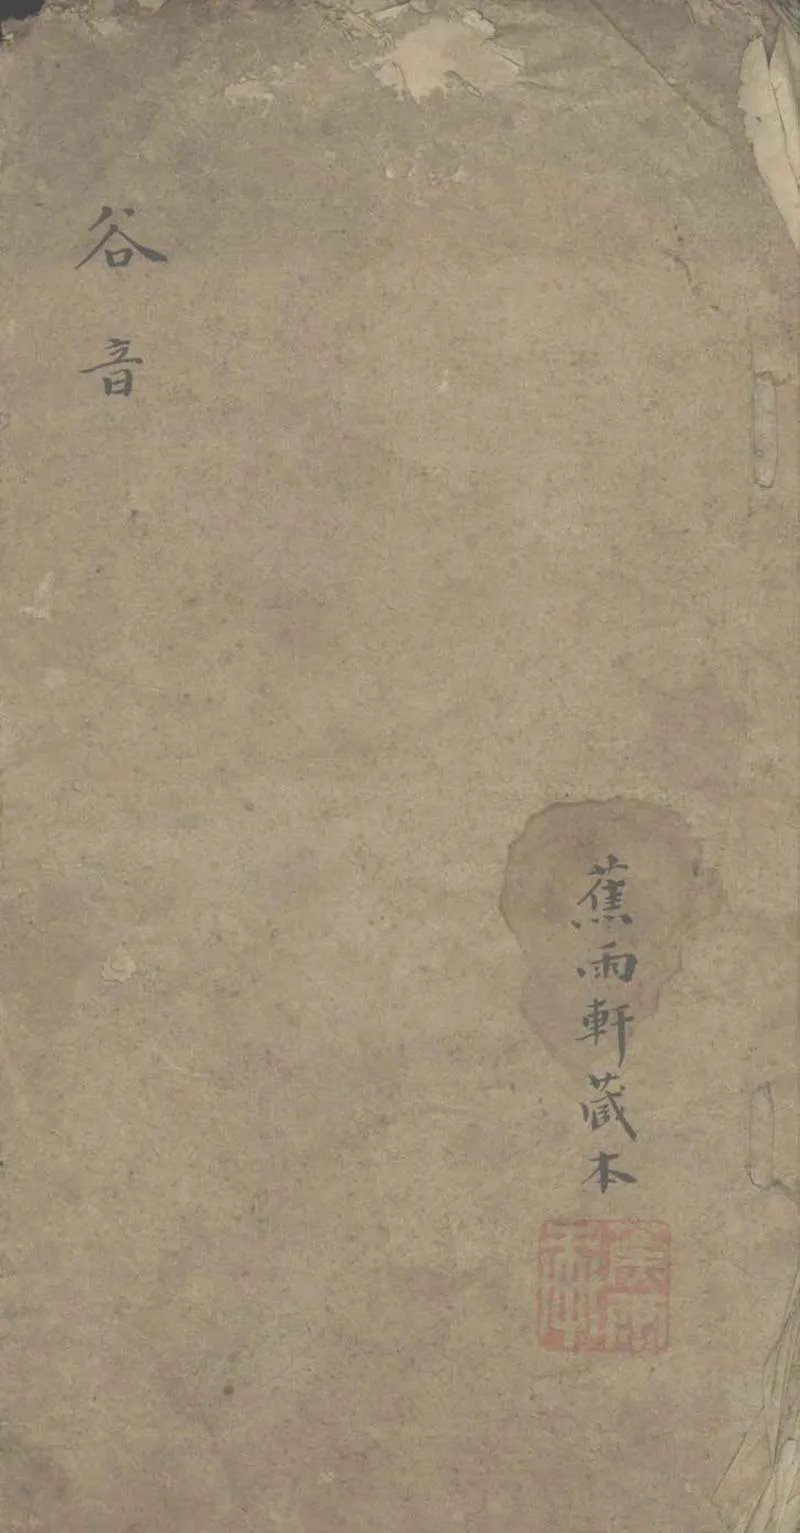 谷音
蕉雨軒蔵本